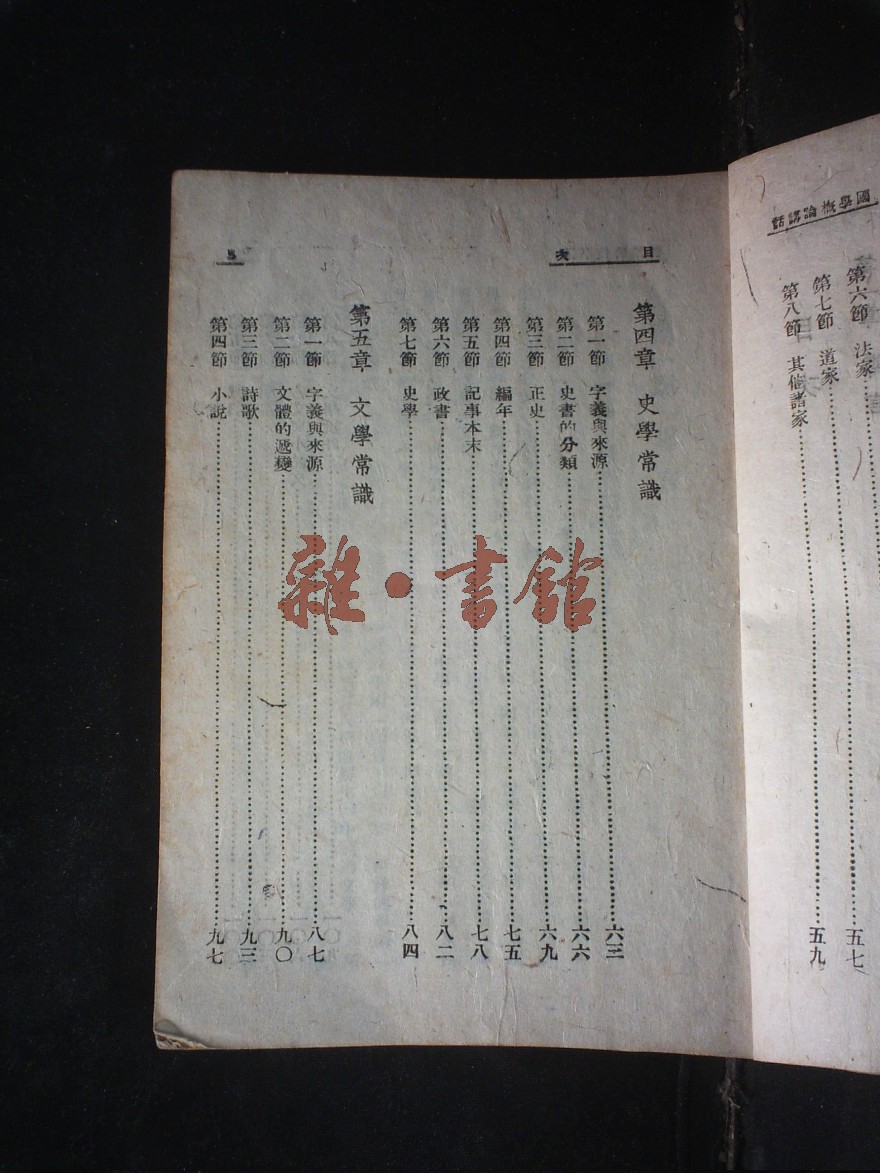 國學概論講話
第六節 法家 五七
第七節 道家
第八節 其他諸家 五九
目次
第四章 史學常識
第一節 字義與來源 六三
第二節 史書的分類 六六
第三節 正史 六九
第四節 編年 七五
第五節 記事本末 七八
第六節 政書 八二
第七節 史學 八四
第五章 文學常識
第一節 字義與來源 八七
第二節 文體的遞變 九〇
第三節 詩歌 九三
第四節 小說 九七
雜·書館